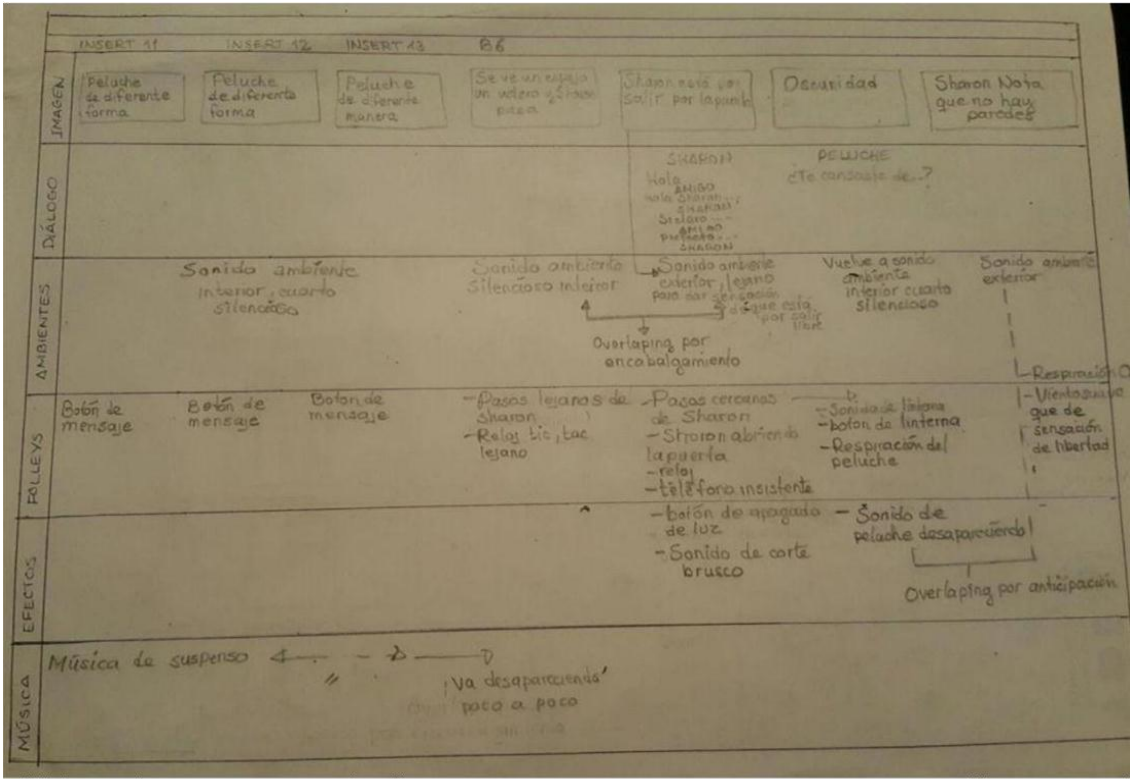 INSERT 11 INSERT 12 INSERT 13 B6
IMAGEN
Peluche
de diferente
forma
Peluche
de diferente
forma
Peluche
de diferente
manera
Se ve un espejo
un
pasa
Sharon está por
salir por la puerta
Oscuridad
Sharon Nota
que no hay
paredes
DIÁLOGO
SHARON
Hola
AMIGO
Hola Sharon...
SHARON
AMIGO
SHARON
PELUCHE
¿Te cansaste de..?
AMBIENTES
Sonido ambiente
interior, cuarto
silencioso
Sonido ambiente
silencioso interior
Sonido ambiente
exterior, lejano
para dar sensación
de que está
por salir
libre
Overlaping por
encabalgamiento
Vuelve a sonido
ambiente
interior cuarto
silencioso
Sonido ambiente
exterior
FOLLEYS
Botón de
mensaje
Botón de
mensaje
Boton de
mensaje
-Pasos lejanos de
Sharon
-Reloj tic, tac
lejano
-Pasos cercanos
de Sharon
-Sharon abriendo
la puerta
-reloj
-teléfono insistente
-Sonido de linterna
-boton de linterna
-Respiración del
peluche
Respiración
-Viento suave
que de
sensación
de libertad
EFECTOS
-botón de apagado
de luz
-Sonido de corte
brusco
- Sonido de
peluche desapareciendo
Overlaping por anticipación
MÚSICA
Música de suspenso
"
Va desapareciendo
poco a poco